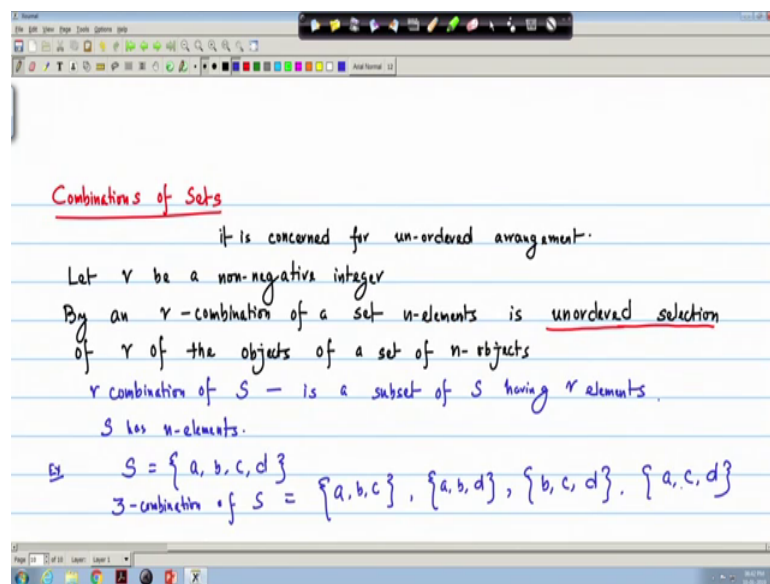 Journal
File Edit View Page Tools Options Help
Arial Normal 12
Combinations of Sets
it is concerned for un-ordered arrangement.
Let r be a non-negative integer
By an r-combination of a set n-elements is unordered selection
of r of the objects of a set of n-objects
r combination of S – is a subset of S having r elements.
S has n-elements.
Ex S = { a, b, c, d }
3-combination of S = { a, b, c } , { a, b, d } , { b, c, d } . { a, c, d }
Page 10 of 10 Layer: Layer 1